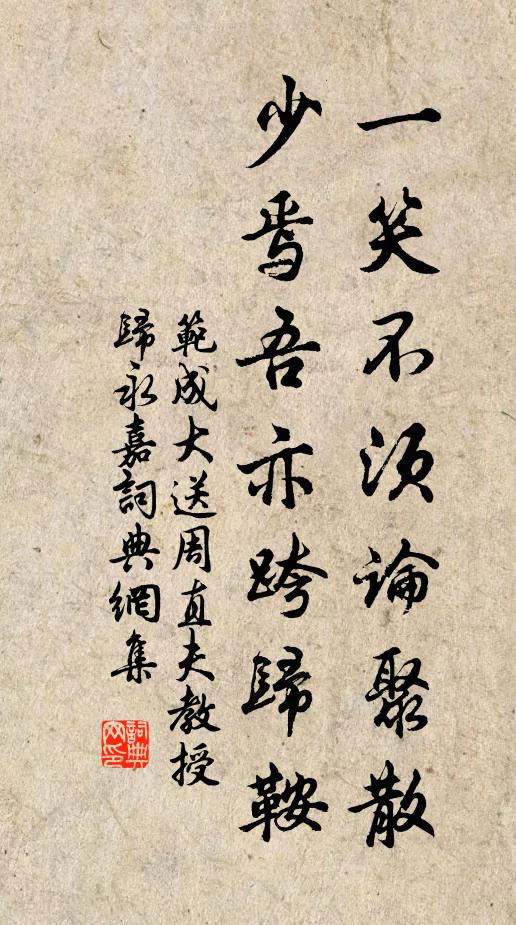 一笑不須論聚散
少焉吾亦跨歸鞍
範成大送周直夫教授
歸永嘉詞典網集
詞典
网印